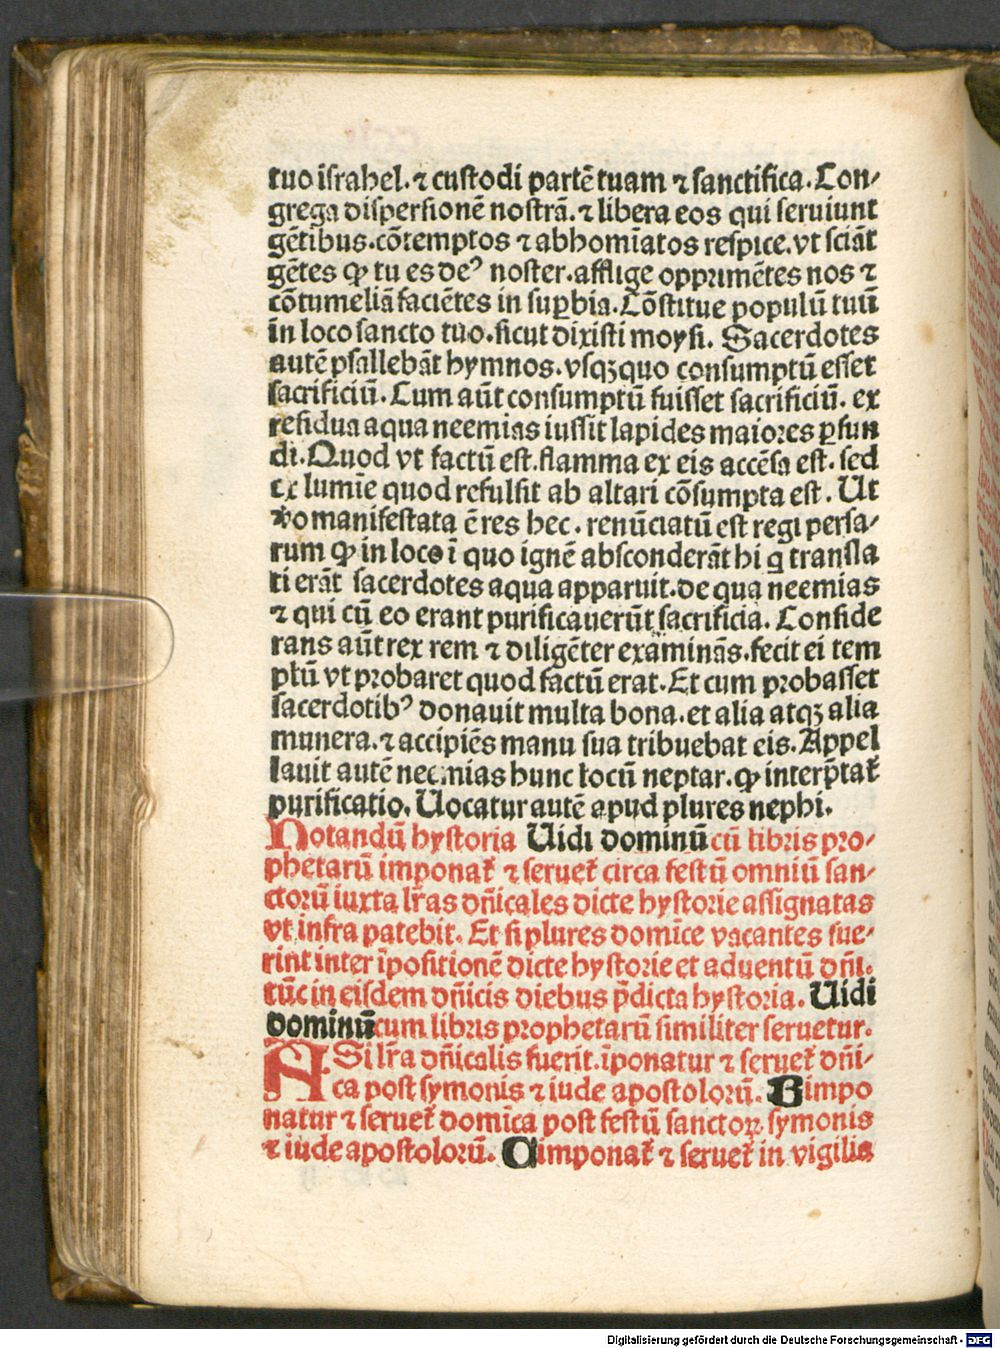 tuo israhel. ⁊ custodi partē tuam ⁊ sanctifica. Con⸗
grega dispersionē nostrā. ⁊ libera eos qui seruiunt
gētibus. cōtemptos ⁊ abhomīatos respice. vt sciāt
gētes ꝙ tu es deꝰ noster. afflige opprimētes nos ⁊
cōtumeliā faciētes in suꝑbia. Cōstitue populū tuū
in loco sancto tuo. sicut dixisti moysi. Sacerdotes
autē psallebāt hymnos. vsqꝫquo consumptū esset
sacrificiū. Cum aūt consumptū fuisset sacrificiū. ex
residua aqua neemias iussit lapides maiores ꝑfun
di. Quod vt factū est. flamma ex eis accēsa est. sed
ex lumīe quod refulsit ab altari cōsumpta est. Ut
ꝟo manifestata ē res hec. renūciatū est regi persa⸗
rum ꝙ in loco ī quo ignē absconderāt hi q̄ transla
ti erāt sacerdotes aqua apparuit. de qua neemias
⁊ qui cū eo erant purificauerūt sacrificia. Conside
rans aūt rex rem ⁊ diligēter examinās. fecit ei tem
plū vt probaret quod factū erat. Et cum probasset
sacerdotibꝰ donauit multa bona. et alia atqꝫ alia
munera. ⁊ accipiēs manu sua tribuebat eis. Appel
lauit autē neemias hunc locū neptar. ꝙ interp̄tat᷑
purificatio. Uocatur autē apud plures nephi.
Notandū hystoria Uidi dominū cū libris pro⸗
phetarū imponat᷑ ⁊ seruet᷑ circa festū omniū san⸗
ctorū iuxta lr̄as dn̄icales dicte hystorie assignatas
vt infra patebit. Et si plures domīce vacantes fue⸗
rint inter īpositionē dicte hystorie et aduentū dn̄i.
tūc in eisdem dn̄icis diebus p̄dicta hystoria. Uidi
dominū cum libris prophetarū similiter seruetur.
A Si lr̄a dn̄icalis fuerit. īponatur ⁊ seruet᷑ dn̄i⸗
ca post symonis ⁊ iude apostolorū. B impo
natur ⁊ seruet᷑ domīca post festū sanctoꝝ symonis
⁊ iude apostolorū. C imponat᷑ ⁊ seruet᷑ in vigilia
Digitalisierung gefördert durch die Deutsche Forschungsgemeinschaft - DFG